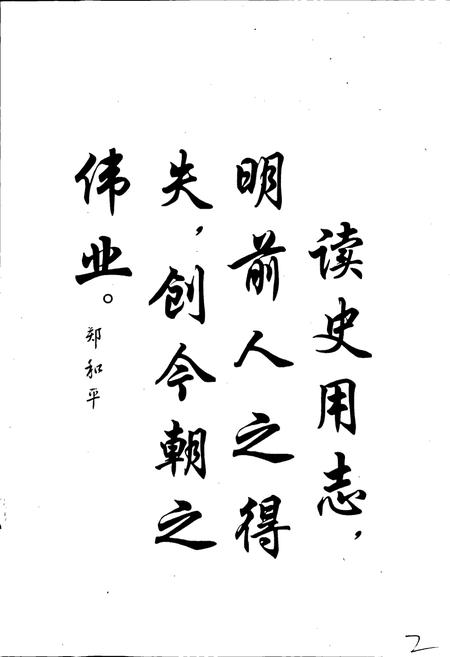 读史用志，
明前人之得
失，创今朝之
伟业。
郑和平
2